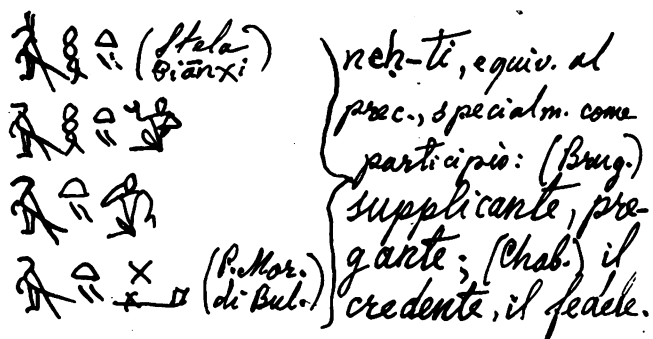 (Stela
Bīānxi)
neḥ-ti, equiv. al
prec., specialm. come
participio: (Brug.)
supplicante, pre-
gante; (Chab.) il
credente, il fedele.
(P. Mor.
di Bul.)